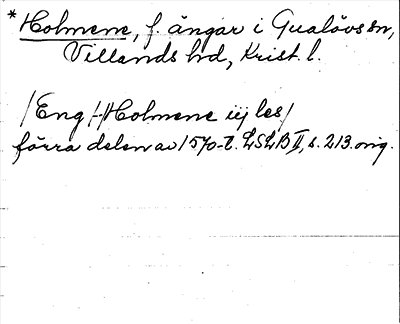 *Holmene, f. ängar i Gualövs sn,
Villands hd, Krist. l.
/Eng/-/Holmene iij les/
förra delen av 1570-t. LSLB II, s. 213. orig.